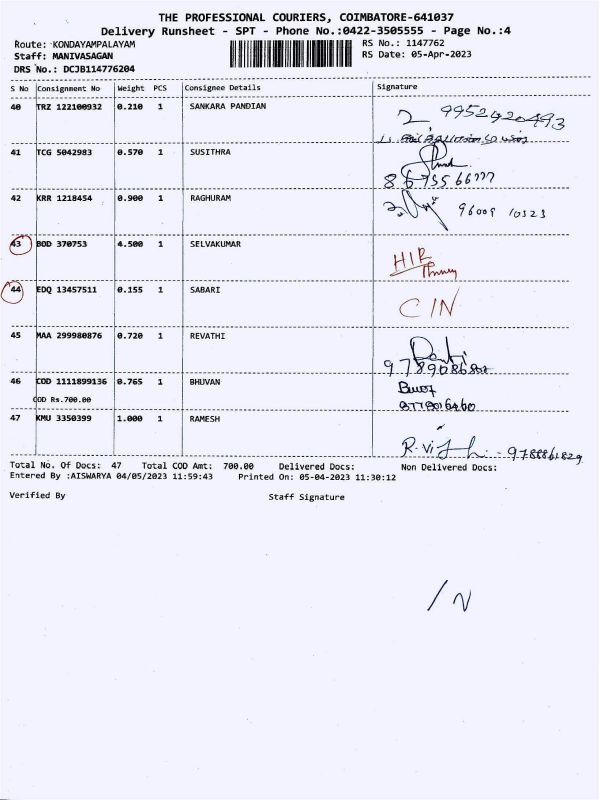 THE PROFESSIONAL COURIERS, COIMBATORE-641037
Delivery Runsheet - SPT - Phone No.:0422-3505555 - Page No.:4
Route: KONDAYAMPALAYAM RS No.: 1147762
Staff: MANIVASAGAN RS Date: 05-Apr-2023
DRS No.: DCJB114776204
S No Consignment No Weight PCS Consignee Details Signature
40 TRZ 122100932 0.210 1 SANKARA PANDIAN
9952420493
41 TCG 5042983 0.570 1 SUSITHRA
42 KRR 1218454 0.900 1 RAGHURAM
96009 10323
43 BOD 370753 4.500 1 SELVAKUMAR
44 EDQ 13457511 0.155 1 SABARI
C/N
45 MAA 299980876 0.720 1 REVATHI
46 COD 1111899136 0.765 1 BHUVAN
COD Rs.700.00
47 KMU 3350399 1.000 1 RAMESH
Total No. Of Docs: 47 Total COD Amt: 700.00 Delivered Docs: Non Delivered Docs:
Entered By :AISWARYA 04/05/2023 11:59:43 Printed On: 05-04-2023 11:30:12
Verified By Staff Signature